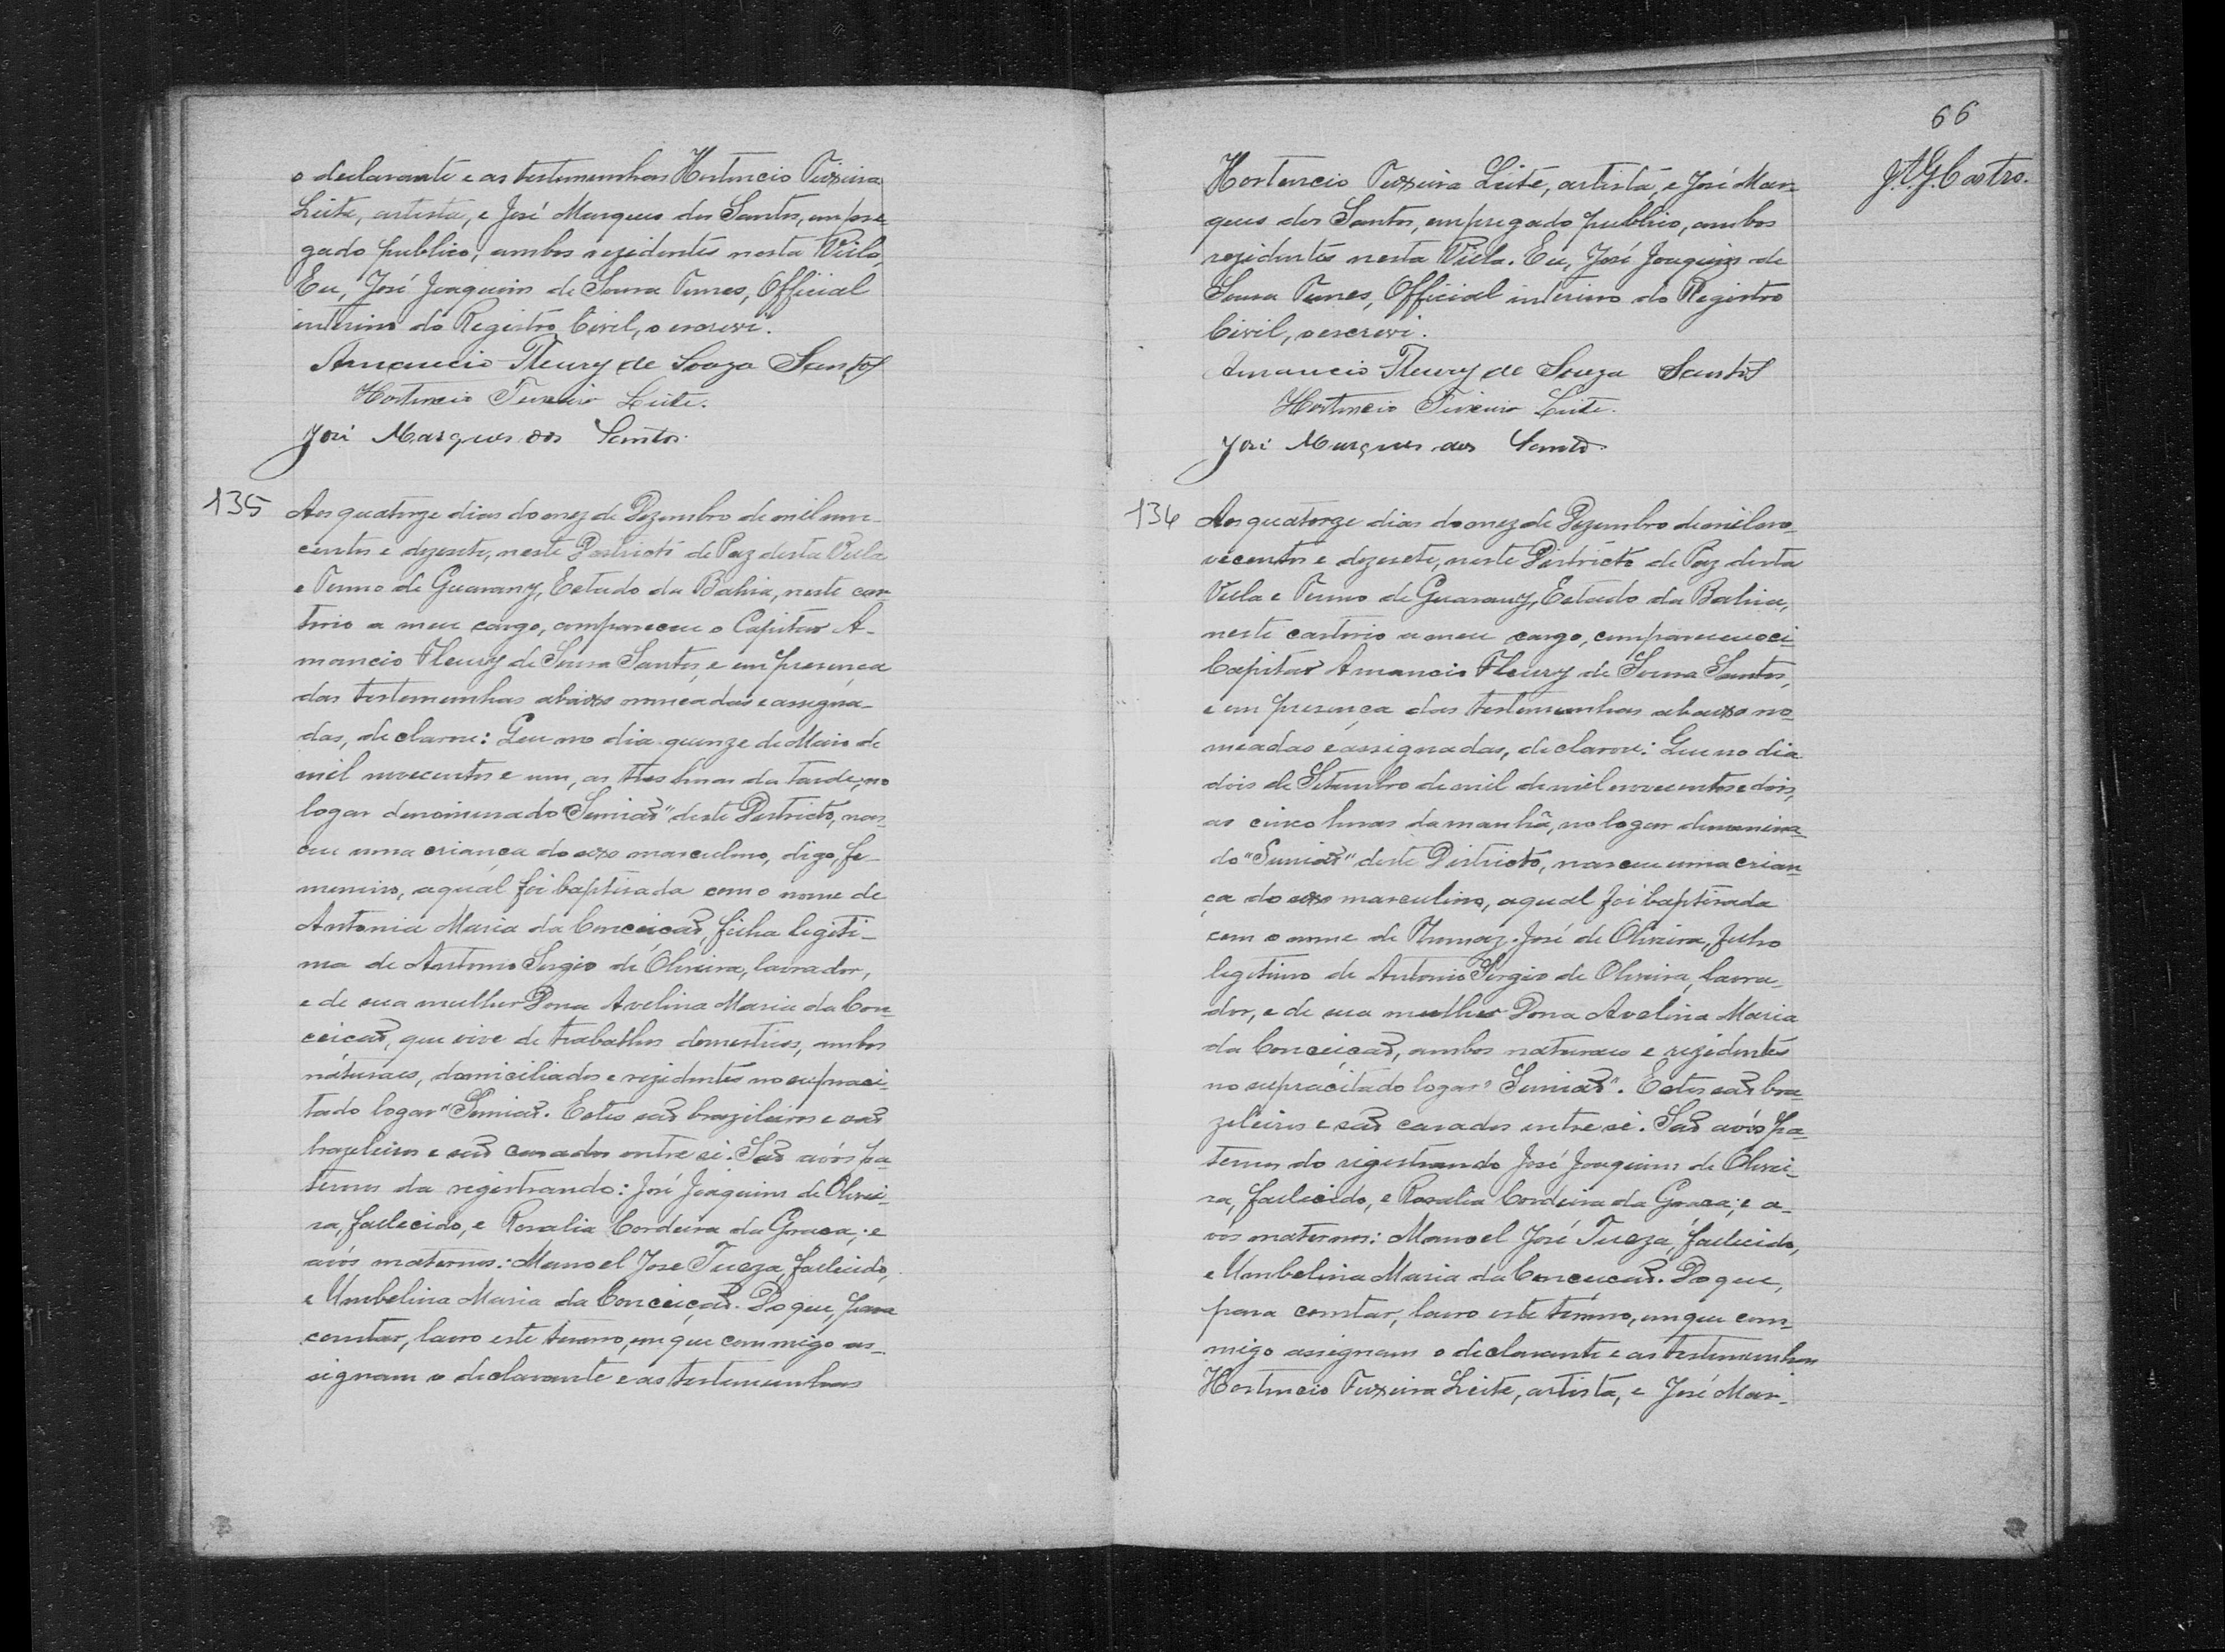 o declarante e as testemunhas Hortencio Teixeira
Leite, artista, e José Marques dos Santos, empre-
gado publico, ambos rezidentes nesta Villa,
Eu, José Joaquim de Souza Tunes, Official
interino do Registro Civil, o escrevi.
Amancio Fleury de Souza Santos
Hortencio Teixeira Leite.
José Marques dos Santos.
135 Aos quatorze dias do mez de Dezembro de mil nove-
centos e dezesete, neste Districto de Paz desta Villa
e Termo de Guarany, Estado da Bahia, neste car-
torio a meu cargo, compareceu o Capitão A-
mancio Fleury de Souza Santos, e em presença
das testemunhas abaixo nomeadas e assigna-
das, declarou: Que no dia quinze de Maio de
mil novecentos e um, as tres horas da tarde, no
logar denominado "Semião" deste Districto, nas-
ceu uma criança do sexo masculino, digo, fe-
menino, a qual foi baptisada com o nome de
Antonia Maria da Conceicão, filha legiti-
ma de Antonio Sergio de Oliveira, lavrador,
e de sua mulher Dona Avelina Maria da Con-
ceicão, que vive de trabalhos domesticos, ambos
naturaes, domiciliados e rezidentes no supraci-
tado logar "Semião. Estes são brazileiros e são
brazeleiros e são casados entre si. São avós pa-
ternos da registrando: José Joaquim de Olivei-
ra, fallecido, e Rosalia Cordeira da Graca; e
avós maternos: Manoel Jose Tueza, fallecido,
e Umbelina Maria da Conceiçaõ. Do que, para
constar, lavro este termo, em que commigo as-
signam o declarante e as testemunhas
66
J.A.G.Castro.
Hortencio Teixeira Leite, artista, e José Mar-
ques dos Santos, empregado publico, ambos
rezidentes nesta Villa. Eu, José Joaquim de
Souza Tunes, Official interino do Registro
Civil, o escrevi.
Amancio Fleury de Souza Santos
Hortencio Teixeira Leite.
José Marques dos Santos.
136 Aos quatorze dias do mez de Dezembro de mil no-
vecentos e dezesete, neste Districto de Paz desta
Villa e Termo de Guarany, Estado da Bahia,
neste cartorio a meu cargo, compareceu o ci-
Capitão Amancio Fleury de Souza Santos,
e em presença das testemunhas abaixo no-
meadas e assignadas, declarou: Que no dia
dois de Setembro de mil de mil novecentos e dois,
as cinco horas da manhã, no logar denomina-
do "Semião" deste Districto, nasceu uma crian-
ça do sexo masculino, a qual foi baptisada
com o nome de Thomaz José de Oliveira, filho
legitimo de Antonio Sergio de Oliveira, lavra-
dor, e de sua mulher Dona Avelina Maria
da Conceiçaõ, ambos naturaes e rezidentes
no supracitado logar "Semiaõ". Estes são bra-
zileiros e são casados entre si. São avós pa-
ternos do registrando José Joaquim de Olivei-
ra, fallecido, e Rosalia Cordeira da Graca; e a-
vós maternos: Manoel José Tueza, fallecido,
e Umbelina Maria da Conceicaõ. Do que,
para constar, lavro este termo, em que com-
migo assignam o declarante e as testemunhas
Hortencio Teixeira Leite, artista, e José Mar-